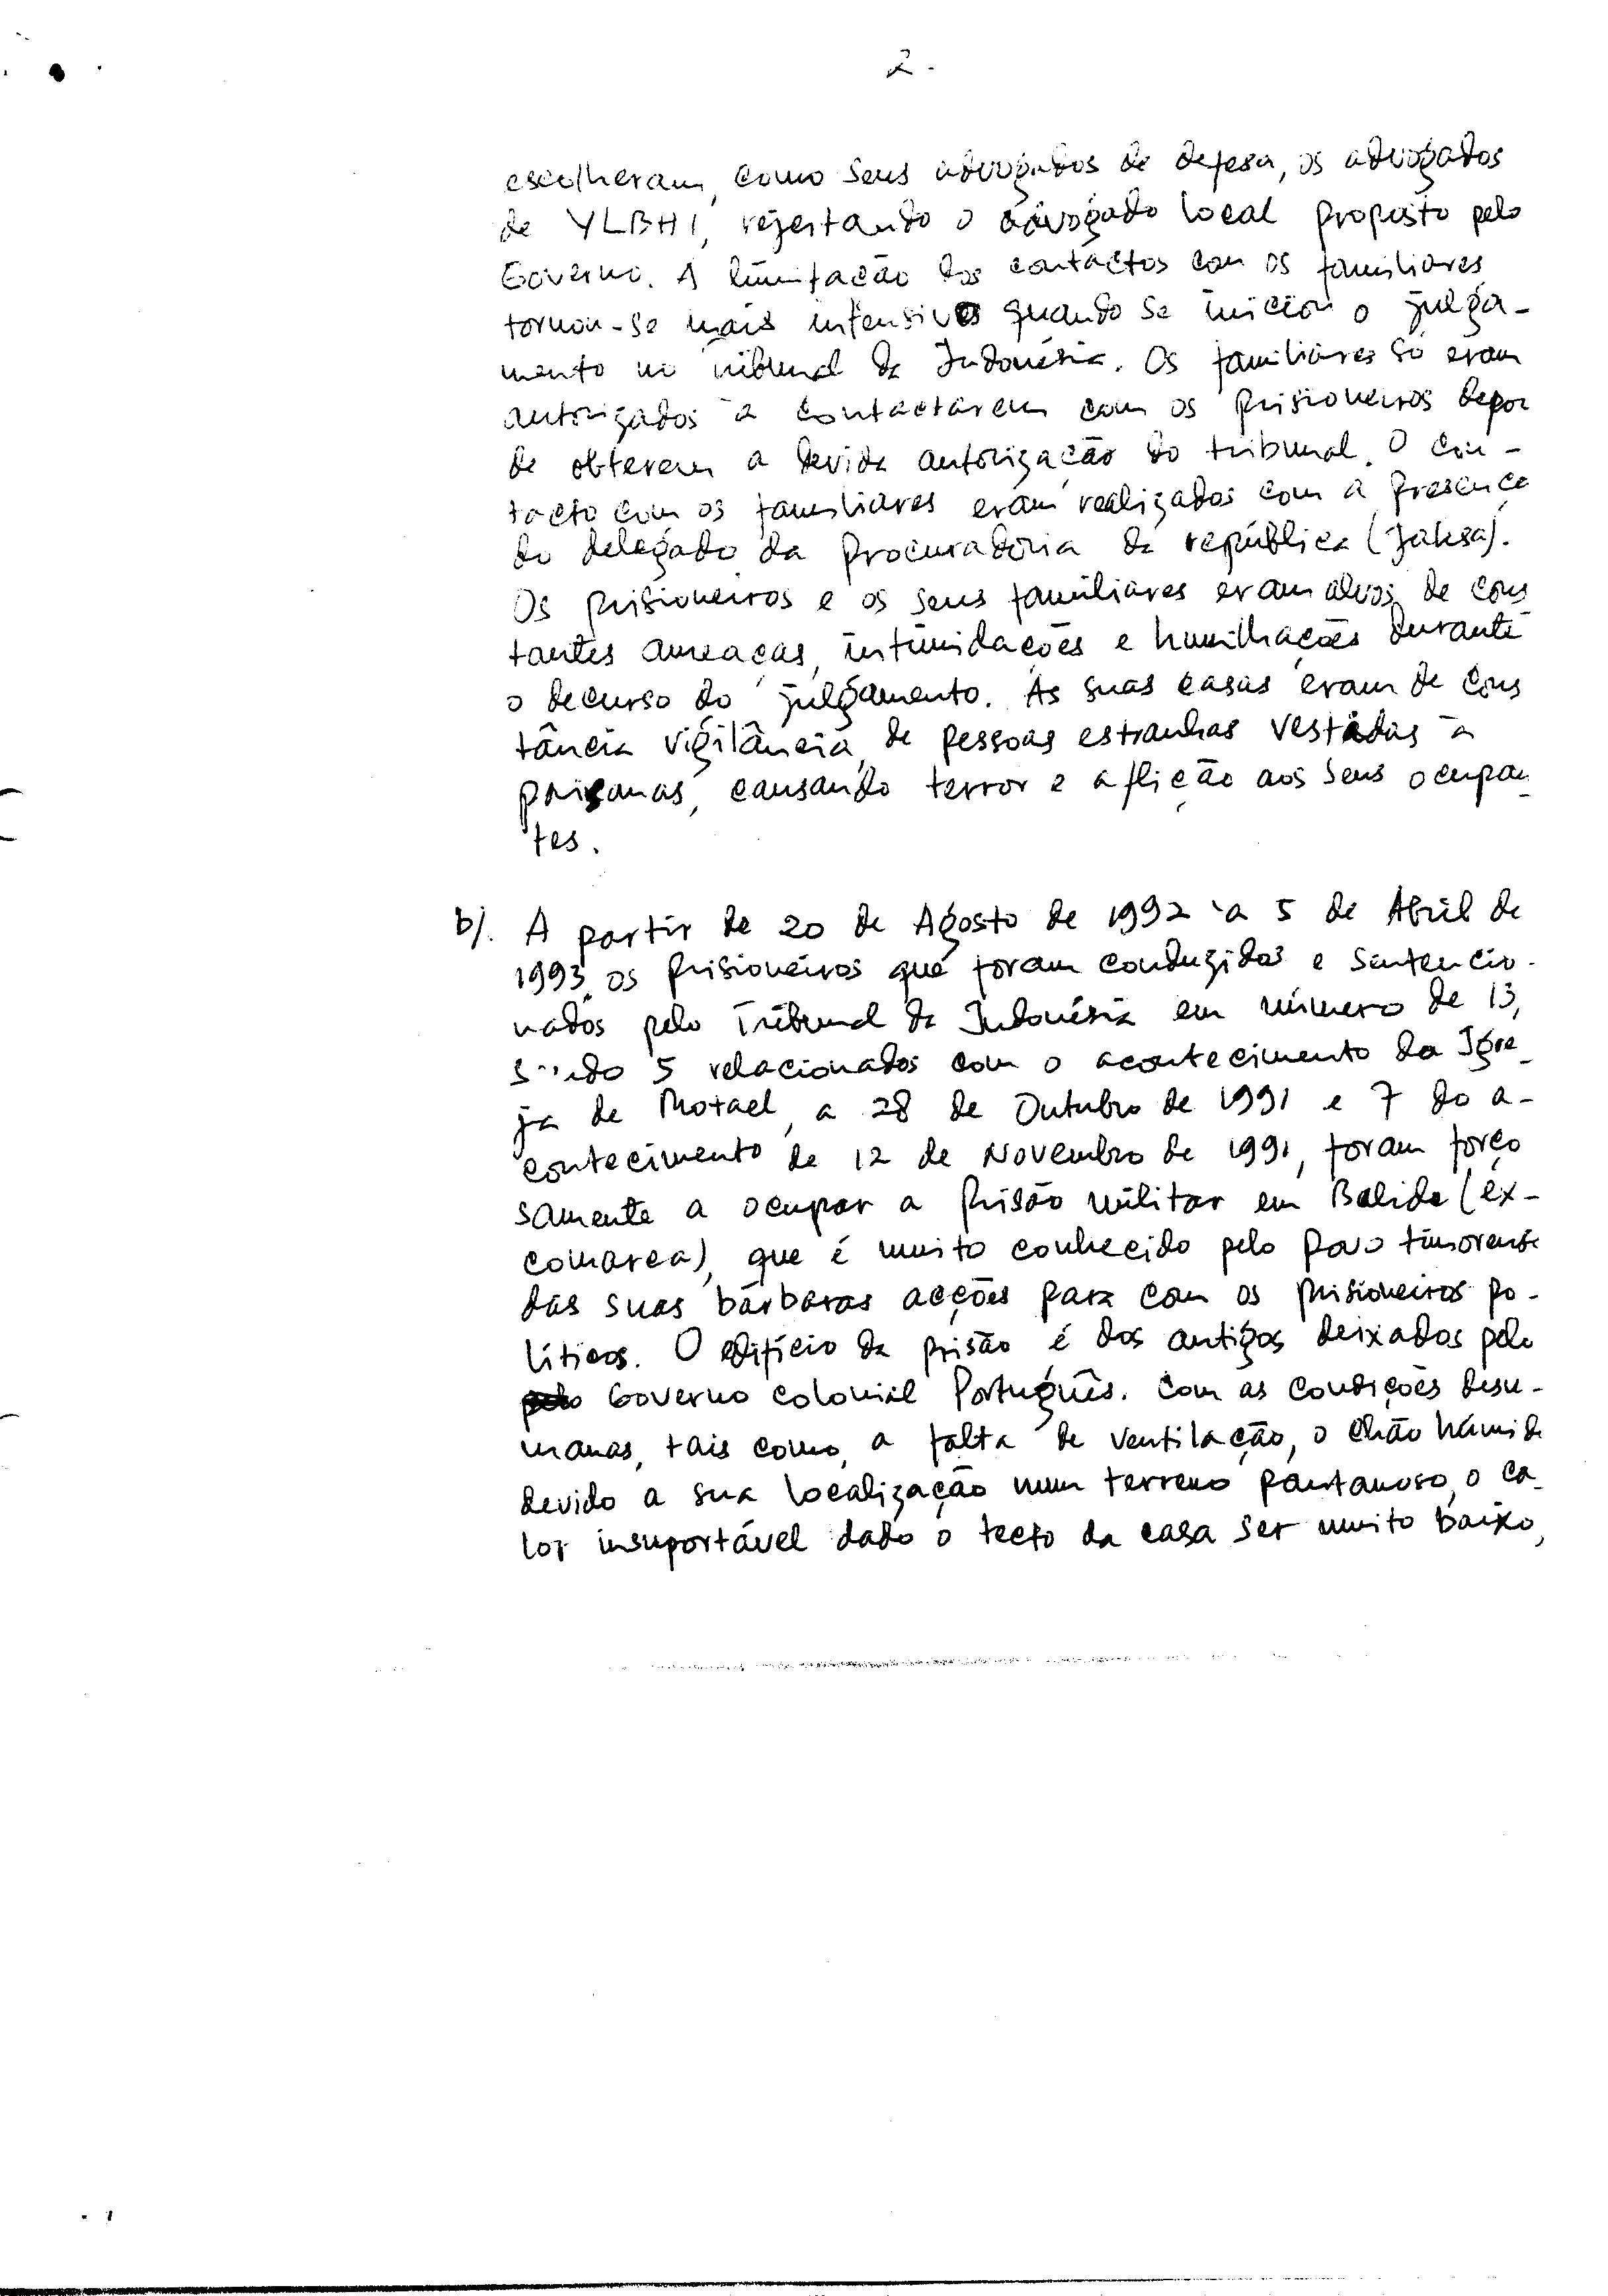 2.
escolheram, como seus advogados de defesa, os advogados
de YLBHI, rejeitando o advogado local proposto pelo
Governo. A limitação dos contactos com os familiares
tornou-se mais intensivo quando se iniciou o julga-
mento no tribunal da Indonésia. Os familiares só eram
autorizados a contactarem com os prisioneiros depoi
de obterem a devida autorização do tribunal. O con-
tacto com os familiares eram realizados com a presença
do delegado da procuradoria da república (Jaksa).
Os prisioneiros e os seus familiares eram alvos de cons
tantes ameaças, intimidações e humilhações durante
o decurso do julgamento. As suas casas eram de cons
tância vigilância, de pessoas estranhas vestidas à
paisanas, causando terror e aflição aos seus ocupan_
tes.
b). A partir de 20 de Agosto de 1992 à 5 de Abril de
1993, os prisioneiros que foram conduzidos e sentencio-
nados pelo Tribunal da Indonésia em número de 13,
sendo 5 relacionados com o acontecimento da Igre_
ja de Motael, a 28 de Outubro de 1991 e 7 do a-
contecimento de 12 de Novembro de 1991, foram forço
samente a ocupar a prisão militar em Balide (ex-
comarca), que é muito conhecido pelo povo timorense
das suas bárbaras acções para com os prisioneiros po-
líticos. O edifício da prisão é dos antigos deixados pelo
pelo Governo colonial Português. Com as condições desu-
manas, tais como, a falta de ventilação, o chão húmido
devido a sua localização num terreno pantanoso, o ca_
lor insuportável dado o tecto da casa ser muito baixo,